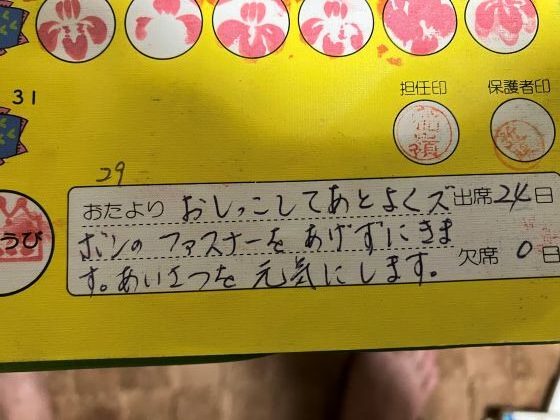 31
担任印 保護者印
29
おたより おしっこしてあとよくズ 出席24日
ボンの ファスナーを あげずにきま
す。あいさつを 元気にします。 欠席 0 日
うび